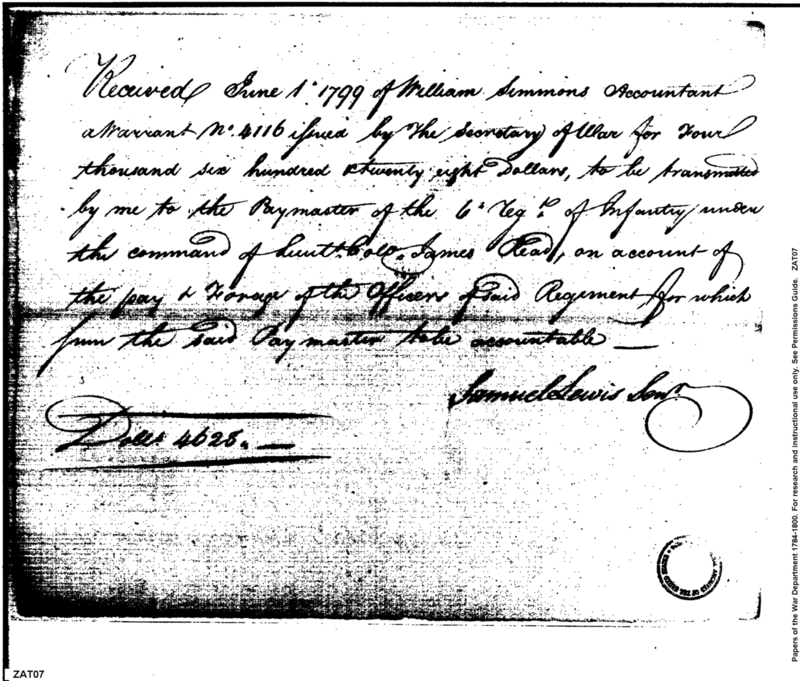 Received June 1st 1799 of William Simmons Accountant
a Warrant No. 4116 issued by the Secretary of War for Four
thousand six hundred & twenty eight Dollars, to be transmitted
by me to the Paymaster of the 6th Regt. of Infantry under
the command of Lieutt. Coll. James Read, on account of
the pay & Forage of the Officers of said Regiment for which
sum the said Paymaster to be accountable —
Samuel Lewis Senr.
Dolls 4628. —
ZAT07
Papers of the War Department 1784-1800. For research and instructional use only. See Permissions Guide. ZAT07